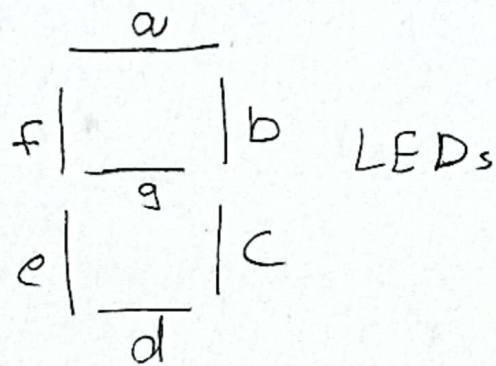 a
f b LEDs
g
e c
d